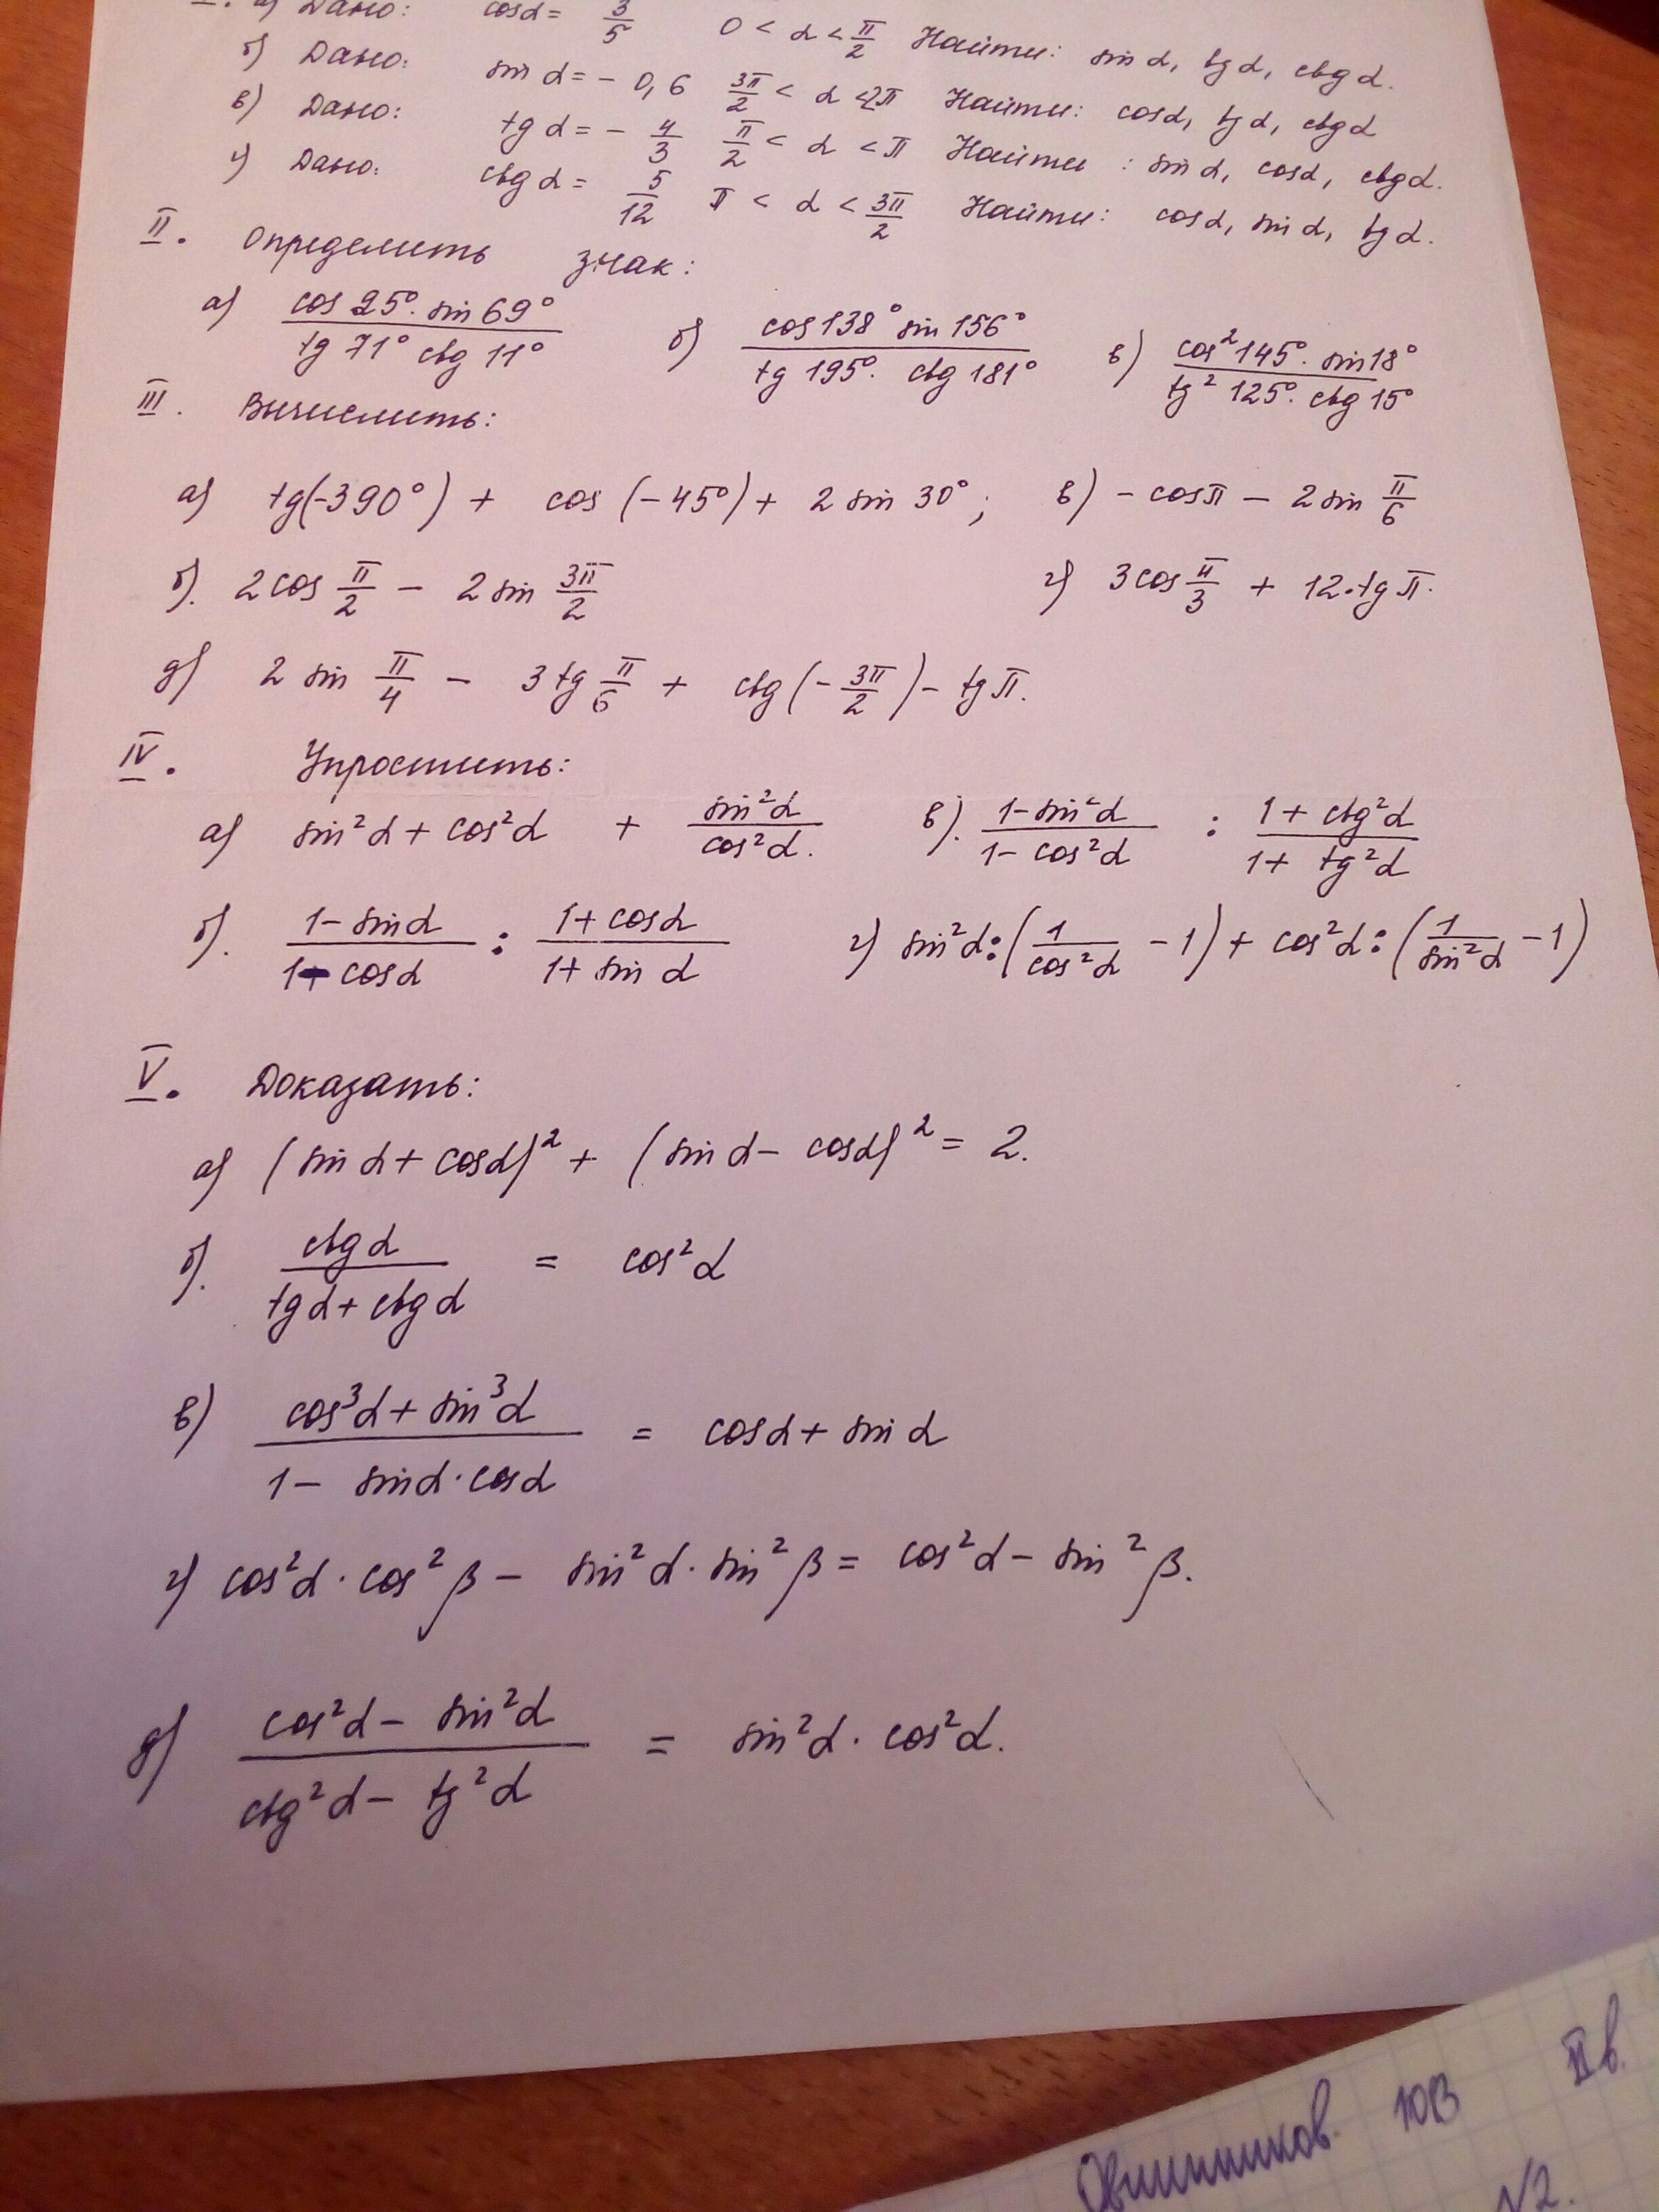 I. а) Дано: cosα = 3/5 0 < α < π/2 Найти: sin α, tg α, ctg α.
б) Дано: sin α = - 0,6 3π/2 < α < 2π Найти: cosα, tg α, ctg α
в) Дано: tg α = - 4/3 π/2 < α < π Найти: sin α, cosα, ctg α.
г) Дано: ctg α = 5/12 π < α < 3π/2 Найти: cosα, sin α, tg α.
II. Определить знак:
а) cos 25°· sin 69° / tg 71° ctg 11° б) cos 138° sin 156° / tg 195°· ctg 181° в) cos² 145°· sin 18° / tg² 125°· ctg 15°
III. Вычислить:
а) tg(-390°) + cos (-45°) + 2 sin 30°; в) - cosπ - 2 sin π/6
б). 2 cos π/2 - 2 sin 3π/2 г) 3 cos π/3 + 12·tg π.
д) 2 sin π/4 - 3 tg π/6 + ctg (- 3π/2) - tg π.
IV. Упростить:
а) sin²α + cos²α + sin²α / cos²α. в). 1 - sin²α / 1 - cos²α : 1 + ctg²α / 1 + tg²α
б). 1 - sin α / 1 - cosα : 1 + cosα / 1 + sin α г) sin²α : (1/cos²α - 1) + cos²α : (1/sin²α - 1)
V. Доказать:
а) (sin α + cosα)² + (sin α - cosα)² = 2.
б). ctg α / tg α + ctg α = cos²α
в) cos³α + sin³α / 1 - sin α · cosα = cosα + sin α
г) cos²α · cos²β - sin²α · sin²β = cos²α - sin²β.
д) cos²α - sin²α / ctg²α - tg²α = sin²α · cos²α.
Овчинников. 10В IIв.
№2.